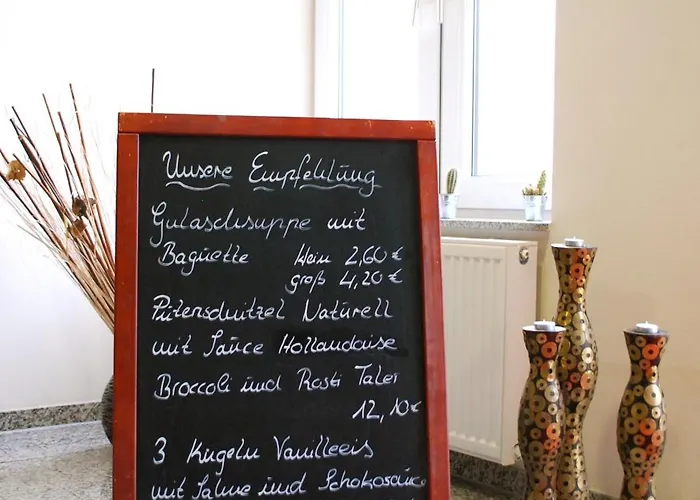 Unsere Empfehlung
Gulaschsuppe mit
Baguette klein 2,60 €
groß 4,20 €
Putenschnitzel Naturell
mit Sauce Hollandaise
Broccoli und Rösti Taler
12,10 €
3 Kugeln Vanilleeis
mit Sahne und Schokosauce